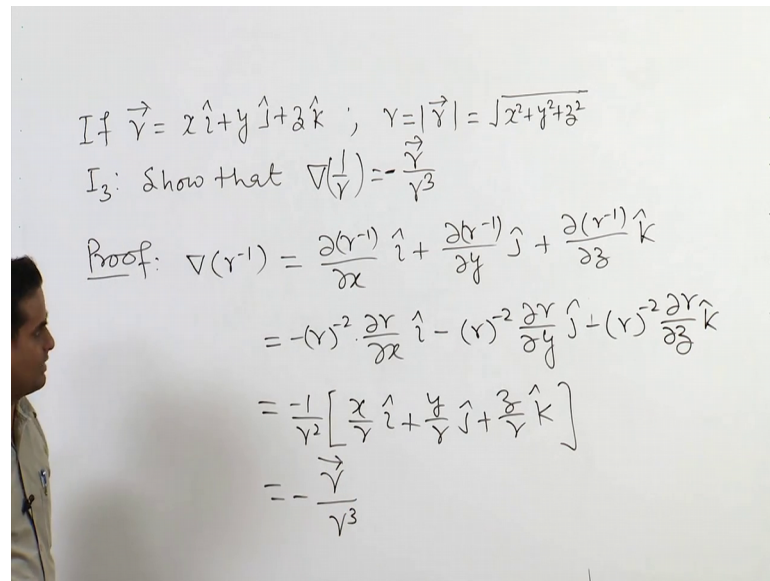 If r⃗ = x î + y ĵ + z k̂ ; r = |r⃗| = √(x²+y²+z²)
I₃: Show that ∇(1/r) = - r⃗/r³
Proof: ∇(r⁻¹) = ∂(r⁻¹)/∂x î + ∂(r⁻¹)/∂y ĵ + ∂(r⁻¹)/∂z k̂
= -(r)⁻² · ∂r/∂x î - (r)⁻² ∂r/∂y ĵ - (r)⁻² ∂r/∂z k̂
= -1/r² [ x/r î + y/r ĵ + z/r k̂ ]
= - r⃗/r³